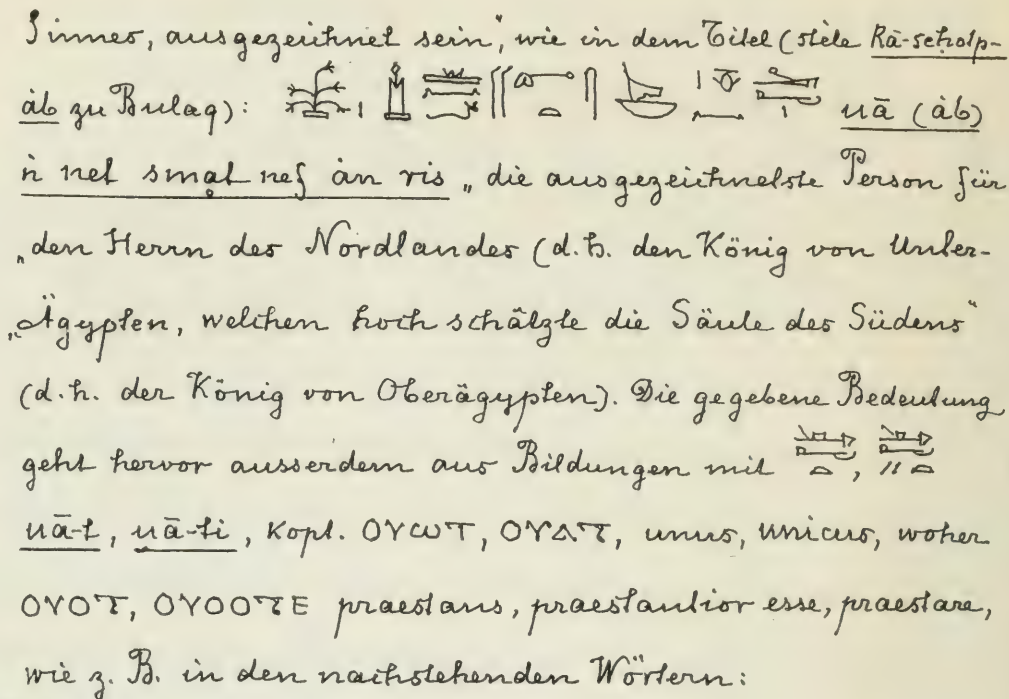 Sinnes, ausgezeichnet sein", wie in dem Titel (stèle Rā-seḥotp-
àb zu Bulaq): uā (àb)
ǹ net smat nef àn ris „die ausgezeichnetste Person für
„den Herrn des Nordlandes (d. h. den König von Unter-
„Ägypten, welchen hoch schätzte die Säule des Südens"
(d. h. der König von Oberägypten). Die gegebene Bedeutung
geht hervor ausserdem aus Bildungen mit ,
uā-t, uā-ti, Kopt. ⲞⲨⲰⲦ, ⲞⲨⲀⲦ, unus, unicus, woher
ⲞⲨⲞⲦ, ⲞⲨⲞⲞⲦⲈ praestans, praestantior esse, praestare,
wie z. B. in den nachstehenden Wörtern: